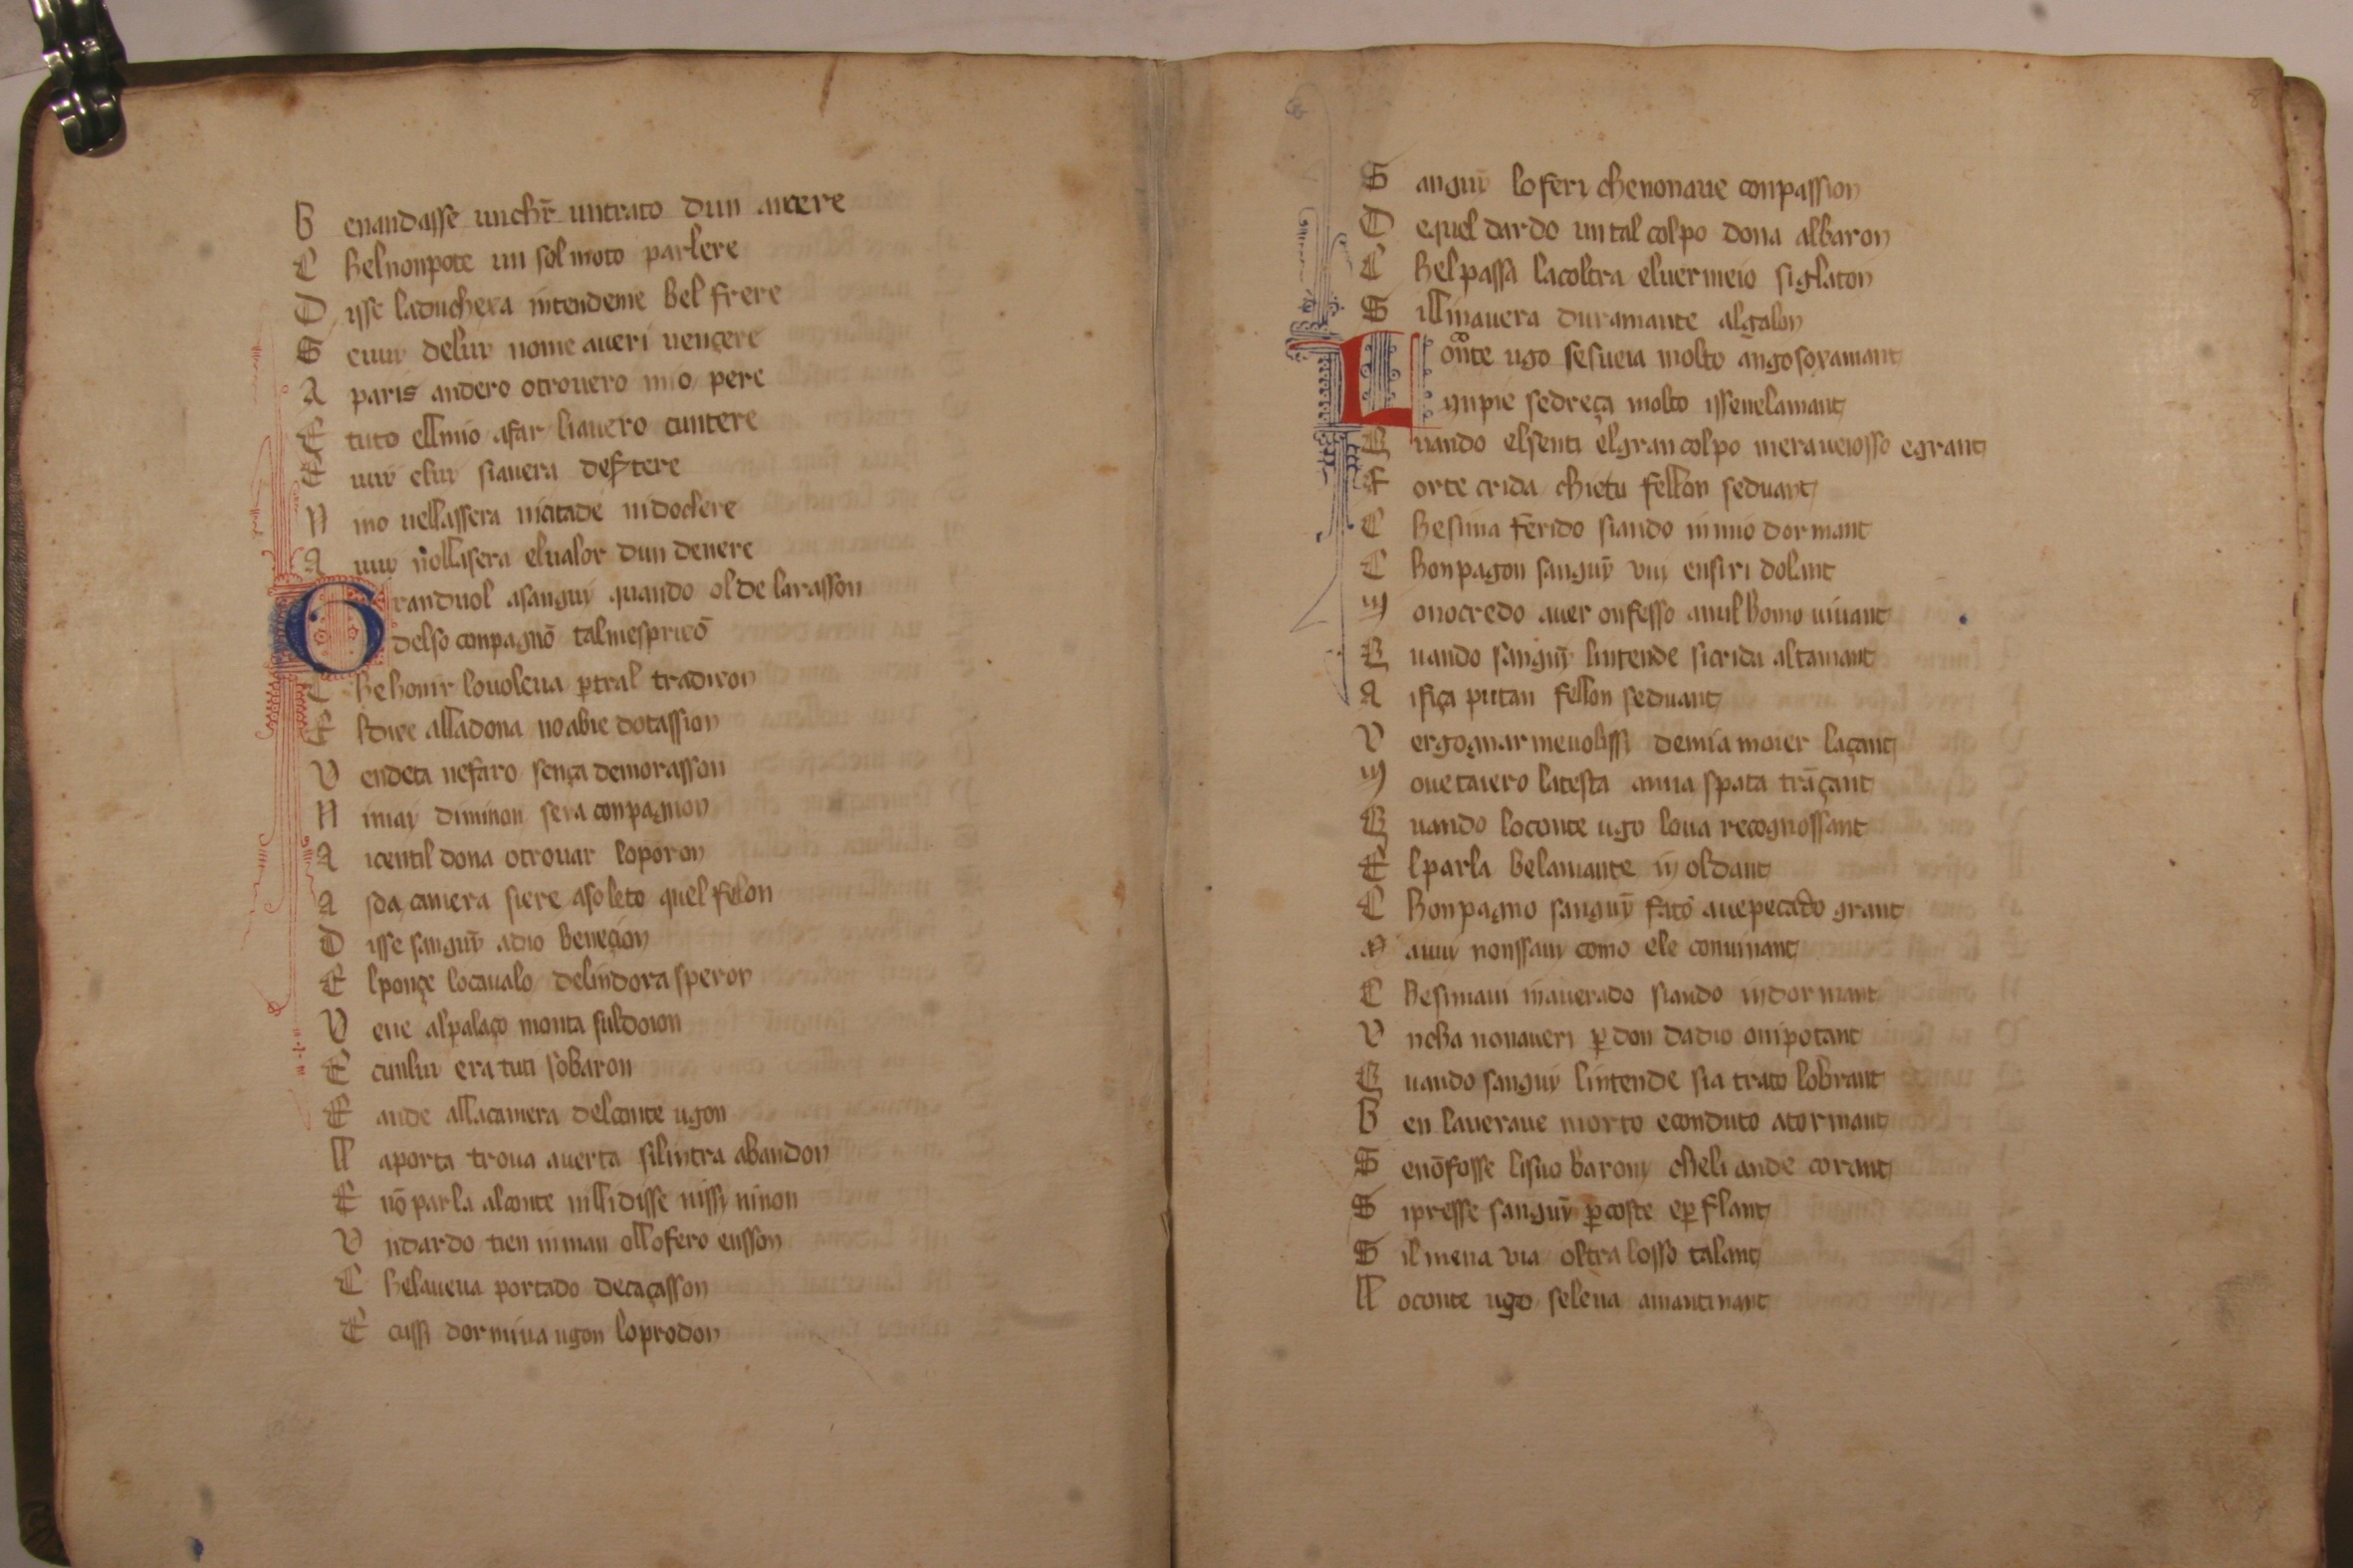 B enandasse unchr̄ untrato dun arcere
C helnonpote un sol moto parlere
D isse laduchexa intendeme bel frere
S euuy deluy nome averi vençere
A paris andero otrovero mio pere
E tuto ellmio afar liavero cuntere
E uuy eluy siavera destere
N ino vellassera nicitade nidoclere
A uuy nollasera elvalor dun denere
G randuol asanguy quando olde larasson
O delso conpagnō talmesprisō
C hehonir lovoleva ꝑtral tradixon
E ldire alladona noabie dotassion
V endeta nefaro sença demorasson
N imay diminon sera conpagnon
A icentil dona otrovar loporon
A sda camera siere asoleto quel felon
D isse sanguȳ adio beneçion
E lponçe locavalo delindora speron
V ene alpalaço monta suldoion
E cunluy era tuti sobaron
E ande allacamera delconte ugon
L aporta trova averta silintra abandon
E nō parla alconte nillidisse nissy ninon
V ndardo tien inman ollofero enson
C helaveva portado decaçasson
E cussi dormiva ugon loprodon
S anguȳ loferi chenonave conpassion
D equel dardo untal colpo dona albaron
C helpassa lacoltra elvermeio siglaton
S illinavera duramante algalon
L oconte ugo sesveia molto angosoxamant
Inpie sedreça molto issnelamant
Q uando elsenti elgran colpo meraveiosso egrant
F orte crida chietu fellon seduant
C hesima ferido siando inmio dormant
C honpagon sanguȳ vuy ensiri dolant
M onocredo aver onfesso anul homo vivant
Q uando sanguȳ lintende sicrida altamant
A ifiça putan fellon seduant
V ergognar mevolissi demia moier laçant
M ovetaiero latesta anna spata trāçant
Q uando loconte ugo lova recognossant
E lparla belamante y oldant
C honpagno sanguȳ fatō avepecado grant
N avuy nonssavy como ele convinant
C hesimavi inaverado siando indormant
V ncha nonaveri ꝑdon dadio onipotant
Q uando sanguy lintende sia trato lobrant
B en laverave morto econduto atormant
S enōfosse lisuo barony cheli ande corant
S ipresse sanguȳ ꝑcoste eꝑ flant
S il mena via oltra losso talant
L oconte ugo seleva amantinant